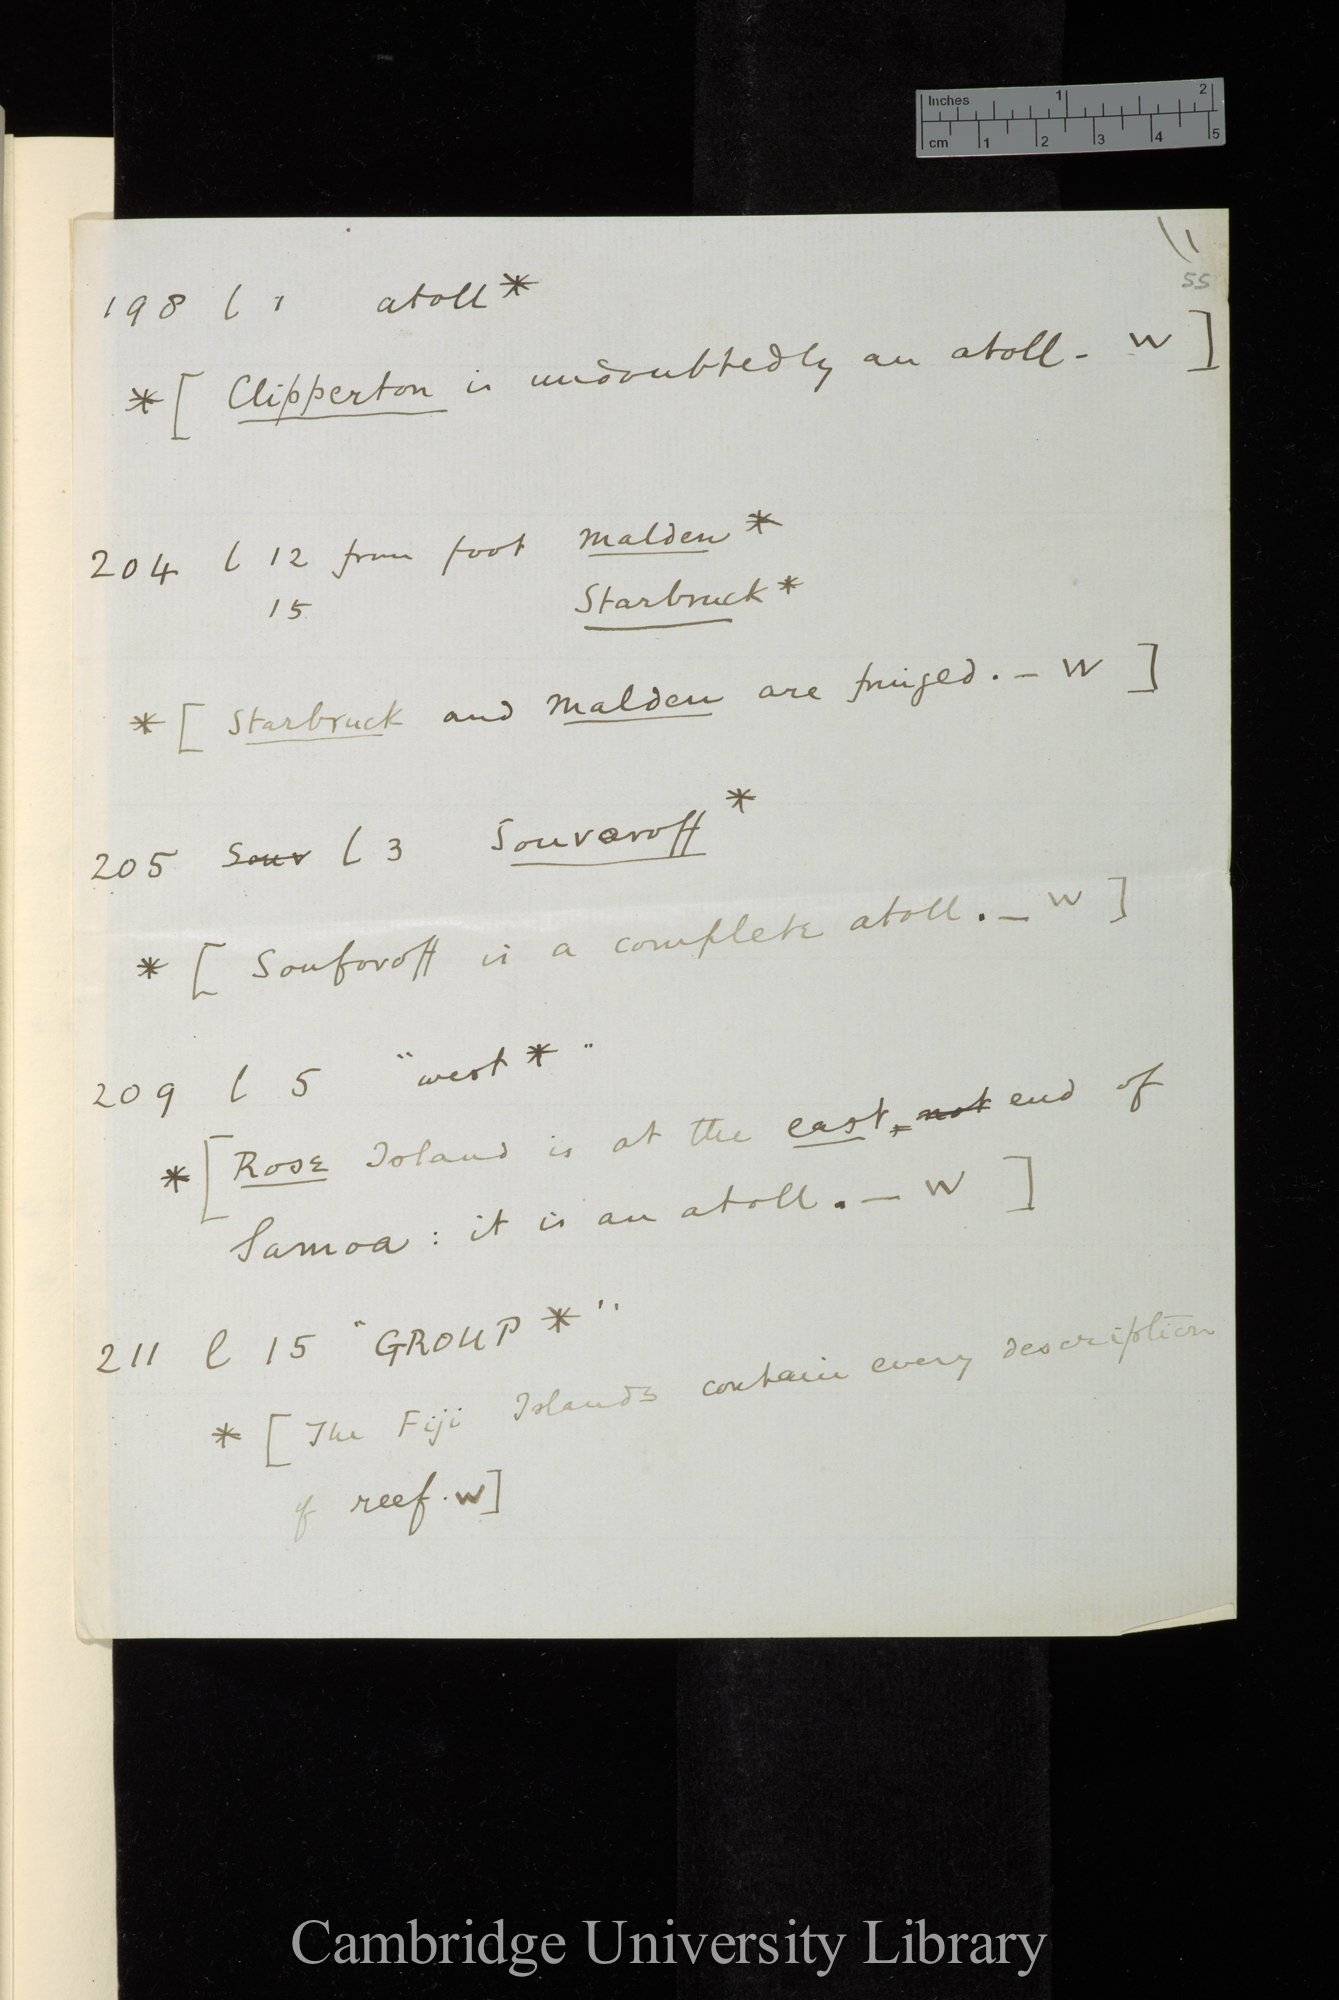 Inches 1 2
cm 1 2 3 4 5
11
55
198 l 1 atoll*
*[ Clipperton is undoubtedly an atoll - W ]
204 l 12 from foot Malden*
15 Starbruck*
*[ Starbruck and Malden are fringed. - W ]
205 Souv l 3 Souvaroff*
*[ Souforoff is a complete atoll. - W ]
209 l 5 "west*"
*[ Rose Island is at the east, not end of
Samoa : it is an atoll. - W ]
211 l 15 "GROUP*"
*[ The Fiji Islands contain every description
of reef. W]
Cambridge University Library